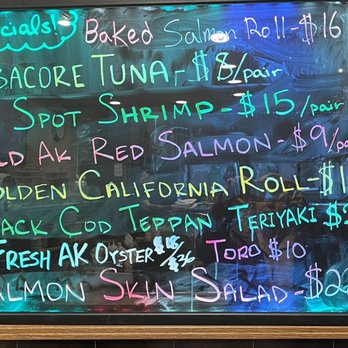 cials! Baked Salmon Roll - $16
BACORE TUNA - $8/pair
SPOT SHRIMP - $15/pair
LD AK RED SALMON - $9/pa
OLDEN CALIFORNIA ROLL - $1
ACK COD TEPPAN TERIYAKI $2
FRESH AK OYSTER $18/$36 TORO $10
ALMON SKIN SALAD - $22